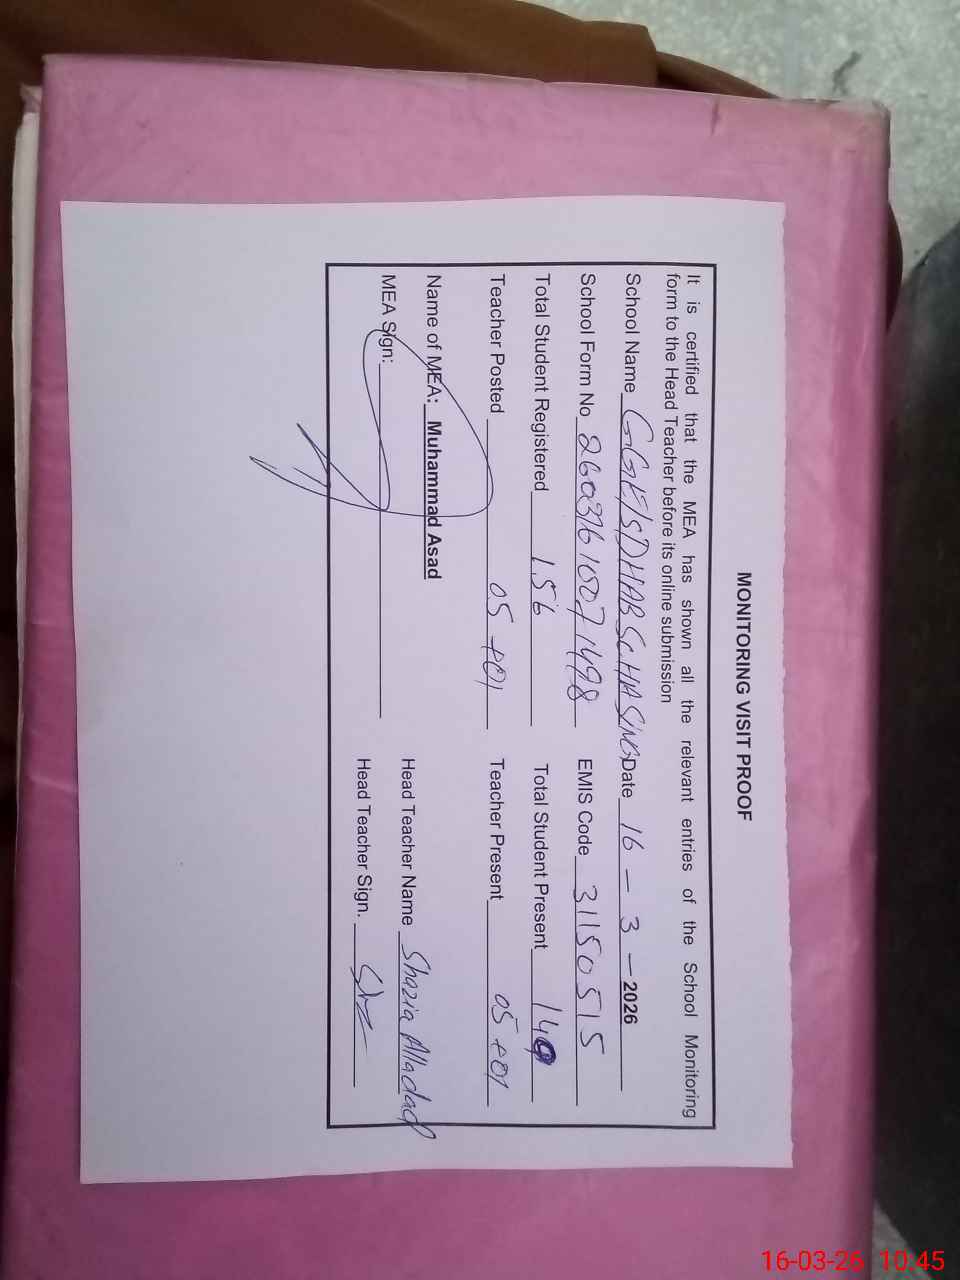 MONITORING VISIT PROOF
It is certified that the MEA has shown all the relevant entries of the School Monitoring
form to the Head Teacher before its online submission
School Name GGE/S DHAB SCHASING Date 16 - 3 - 2026
School Form No EMIS Code 31150515
Total Student Registered 156 Total Student Present
Teacher Posted 05 +01 Teacher Present 05 +01
Name of MEA: Muhammad Asad Head Teacher Name Shazia Alladad
MEA Sign: Head Teacher Sign.
16-03-26 10.45